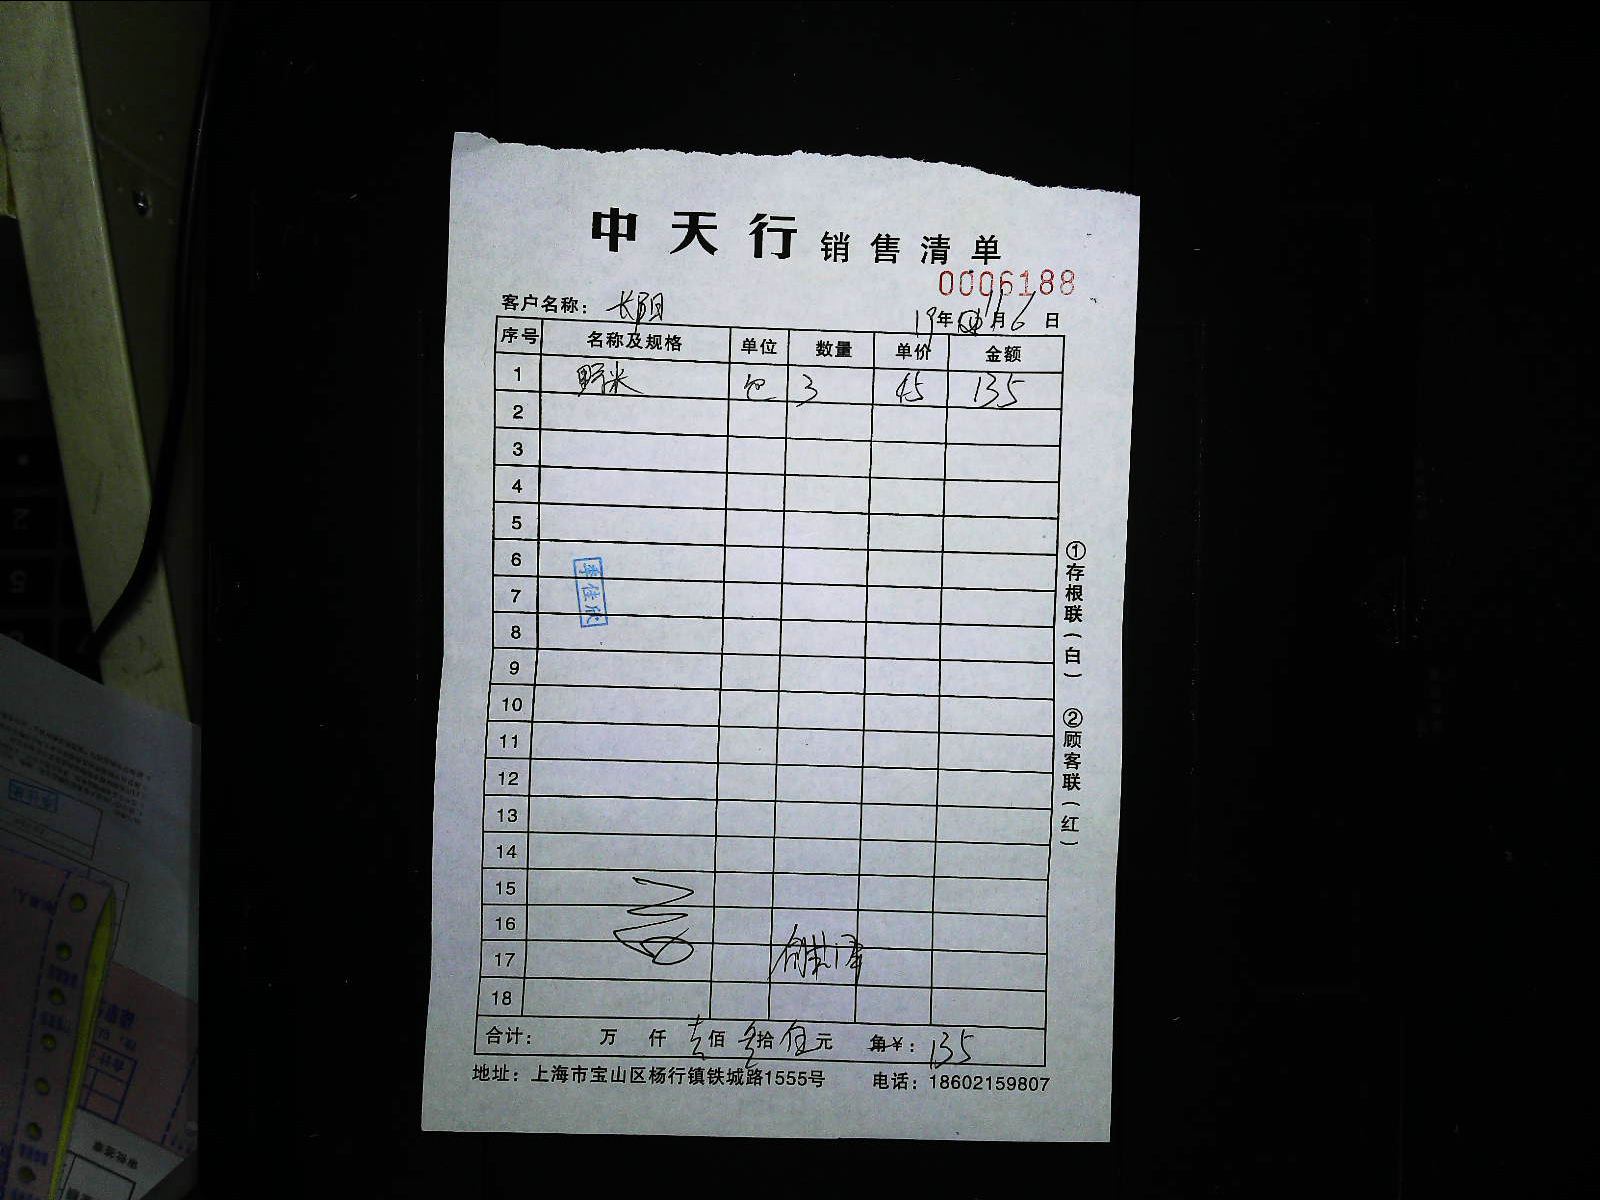 中天行 销售清单
0006188
客户名称： 长阳
19年 11月6日
序号 名称及规格 单位 数量 单价 金额
1 野米 包 3 45 135
2
3
4
5
6
7
8
9
10
11
12
13
14
15
16
17
18
李佳欣
合计： 万 仟 壹佰 叁拾 伍元 角¥： 135
地址：上海市宝山区杨行镇铁城路1555号 电话：18602159807
①存根联（白） ②顾客联（红）